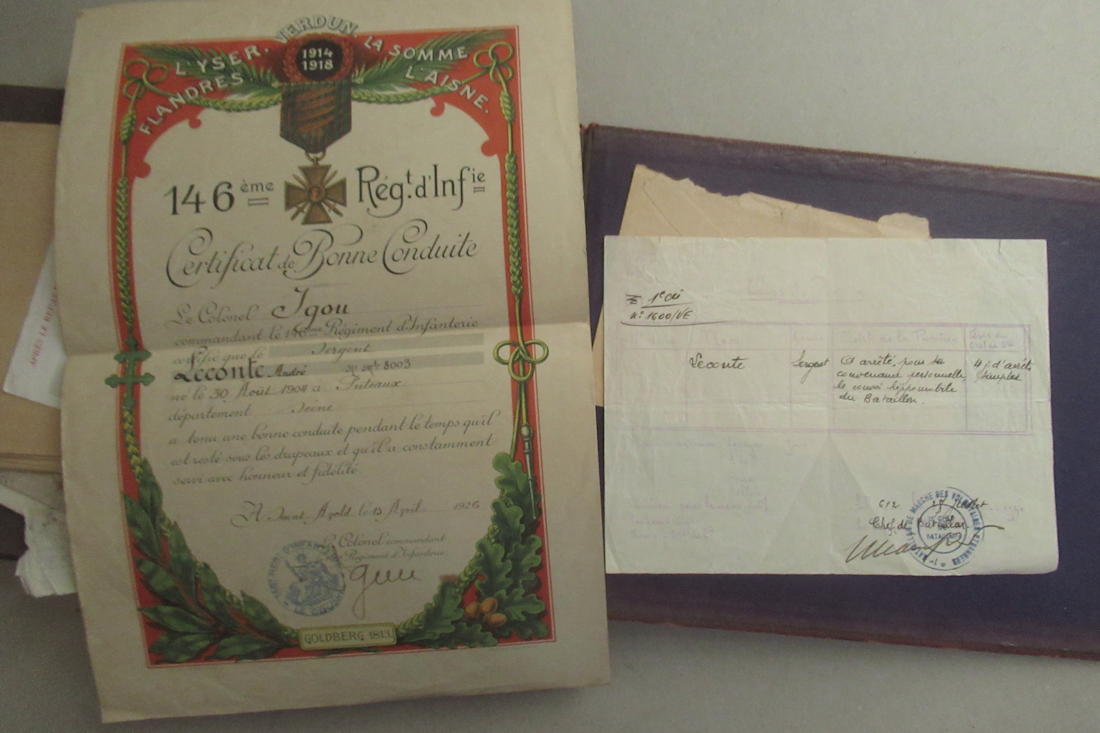 L'YSER. VERDUN. LA SOMME
FLANDRES L'AISNE.
1914
1918
146 ème Rég.t d'Inf ie
Certificat de Bonne Conduite
Le Colonel Igou
commandant le 146ème Régiment d'Infanterie
certifie que le Sergent
Leconte André 8003
né le 30 Août 1904 à Puteaux
département Seine
a tenu une bonne conduite pendant le temps qu'il
est resté sous les drapeaux et qu'il a constamment
servi avec honneur et fidélité
A Saint Avold le 15 Avril 1926
Le Colonel commandant
Régiment d'Infanterie
GOLDBERG 1813
APRÈS LE
1e Cie
No 1600/VE
Leconte
Sergent
A arrêté, pour sa
convenance personnelle,
le convoi hippomobile
du Bataillon.
4 j. d'arrêts
simples
Chef de Bataillon
DE MARCHE DES VOLONTAIRES ETRANGERS
BATAILLON